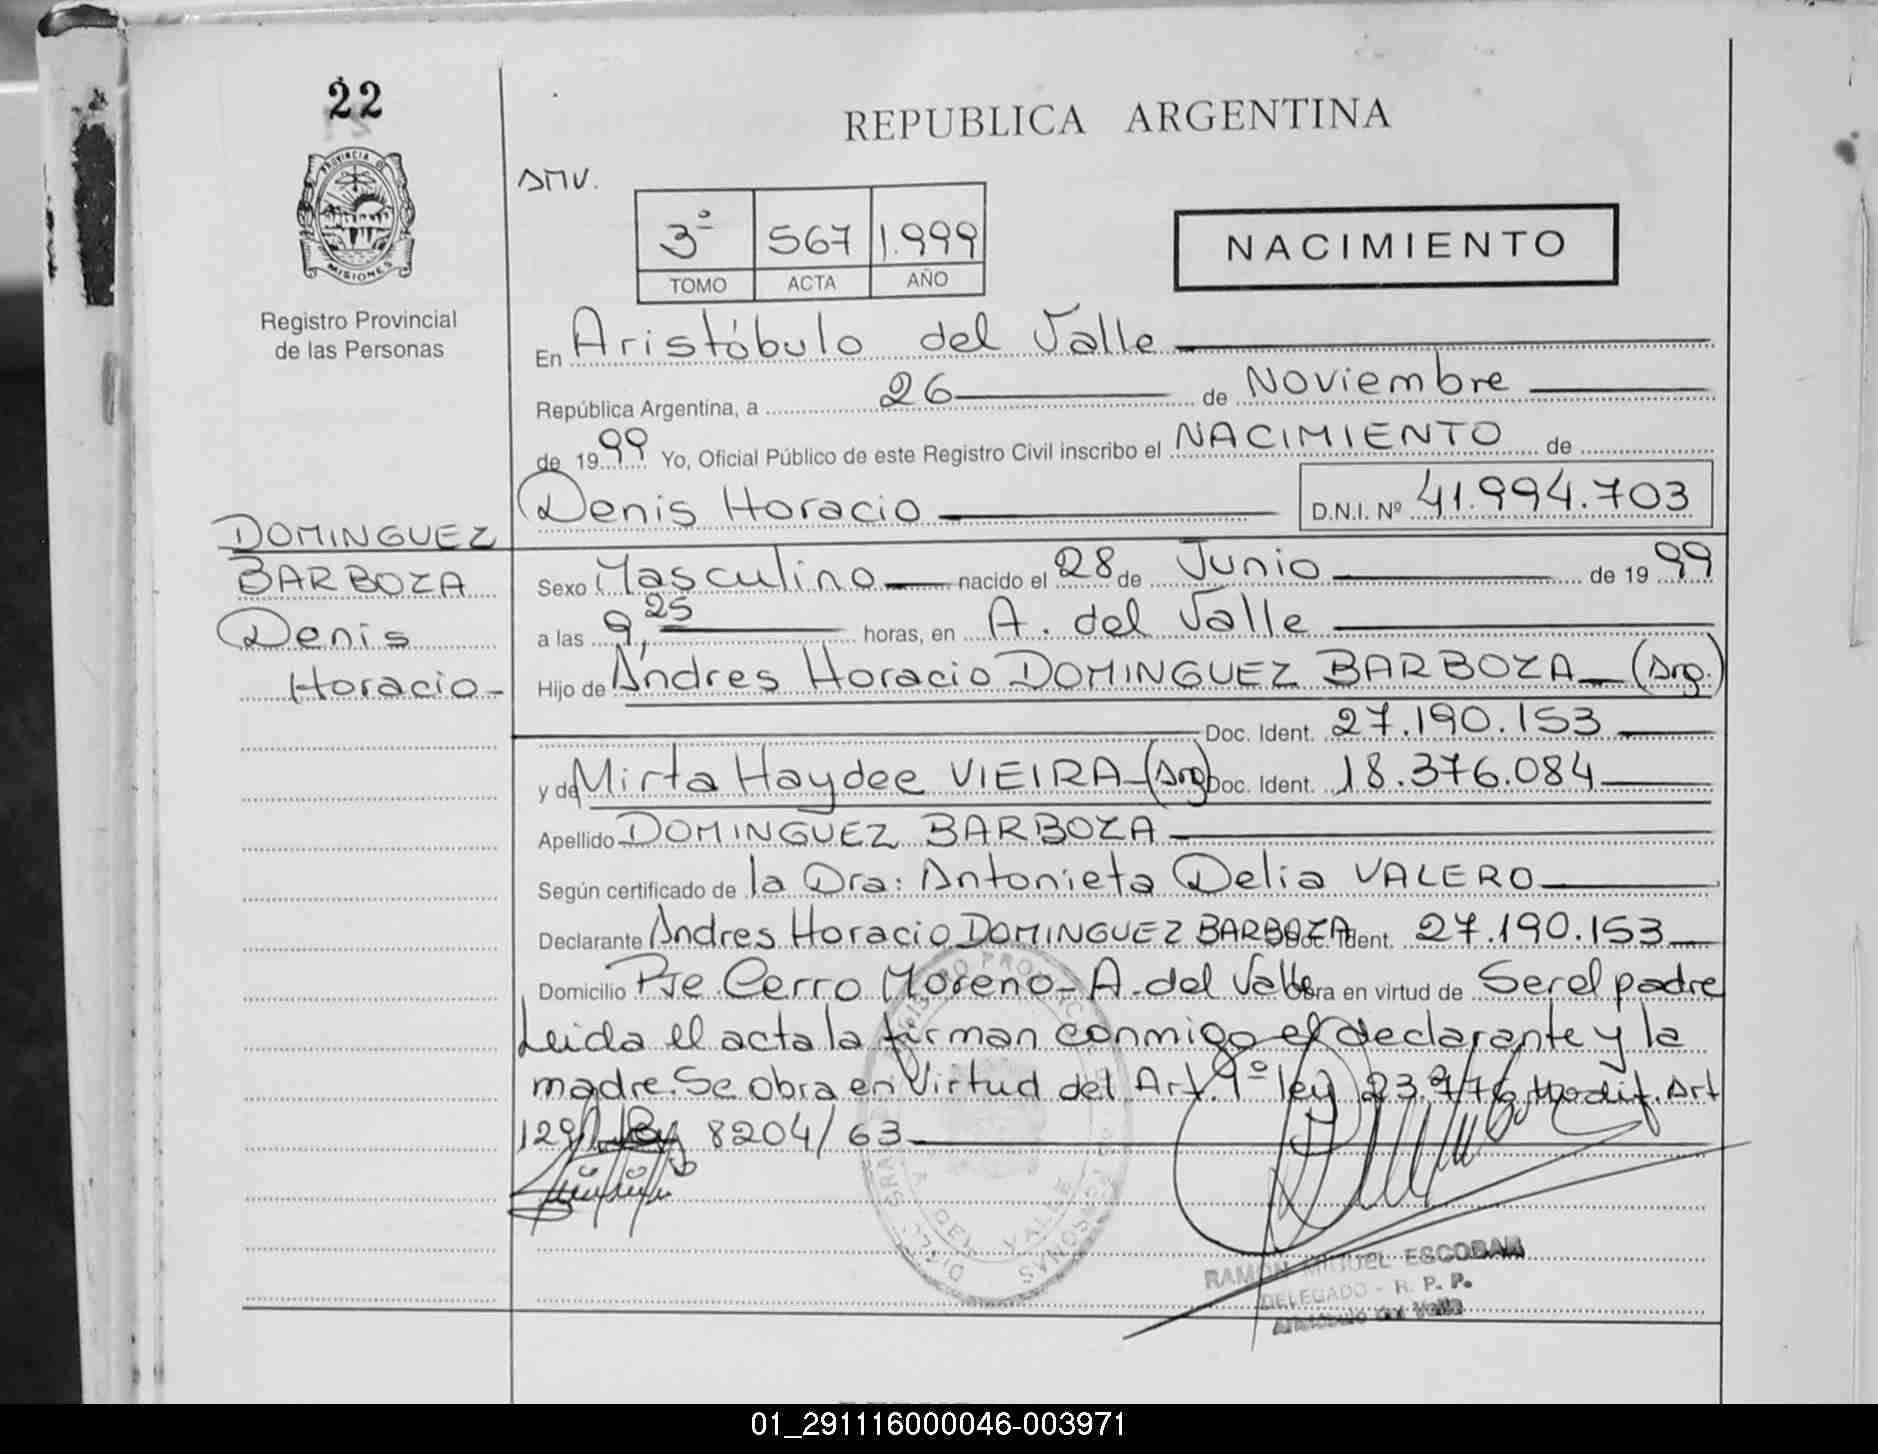 22
PROVINCIA DE
MISIONES
Registro Provincial
de las Personas
REPUBLICA ARGENTINA
AMV.
3º 567 1.999
TOMO ACTA AÑO
NACIMIENTO
En Aristóbulo del Valle
República Argentina, a 26 de Noviembre
de 1999 Yo, Oficial Público de este Registro Civil inscribo el NACIMIENTO de
Denis Horacio D.N.I. Nº 41.994.703
DOMINGUEZ
BARBOZA
Denis
Horacio
Sexo Masculino nacido el 28 de Junio de 1999
a las 9,25 horas, en A. del Valle
Hijo de Andres Horacio DOMINGUEZ BARBOZA (Arg.)
Doc. Ident. 27.190.153
y de Mirta Haydee VIEIRA (Arg) Doc. Ident. 18.376.084
Apellido DOMINGUEZ BARBOZA
Según certificado de la Dra: Antonieta Delia VALERO
Declarante Andres Horacio DOMINGUEZ BARBOZA Doc. Ident. 27.190.153
Domicilio Pje Cerro Moreno - A. del Valle Obra en virtud de Ser el padre
Leida el acta la firman conmigo el declarante y la
madre. Se obra en Virtud del Art. 9º ley 23.776 Modif. Art
129 Ley 8204/63
RAMON MIGUEL ESCOBAR
DELEGADO - R. P. P.
Aristóbulo del Valle
01_291116000046-003971